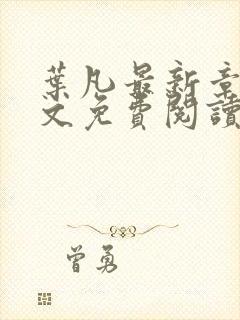 葉凡最新章
文免費閱讀
曾勇